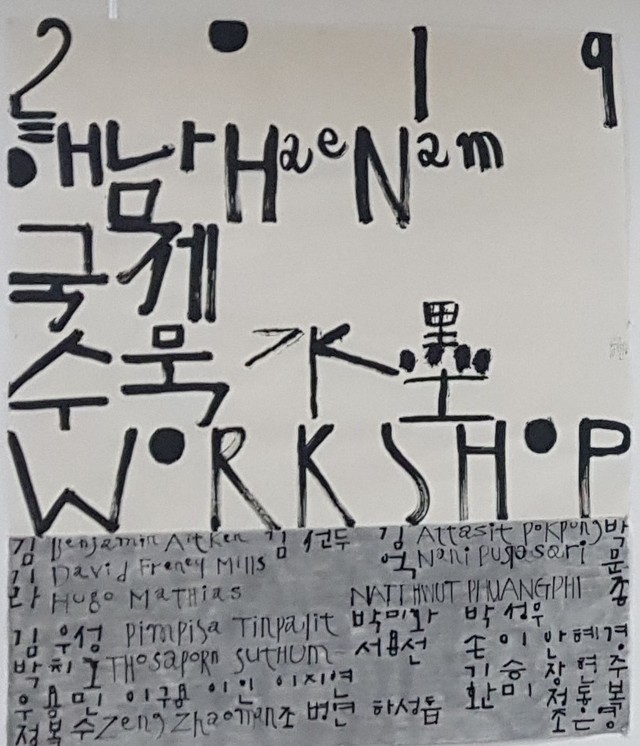 2 • 1 9
해남 HaeNam
국제
수묵 水墨
W•RKSH•P
김 Benjamin Aitken 김 선두 Attasit Pokpong 박
David Freney Mills Nani Puspasari 문
라 Hugo Mathias NATTHWUT PHUANGPHI 종
김 우성 Pimpisa Tinpalit 박미화 박 성우
박 THosaporn suthum 서용선 손 이 안 혜 경
우 용 민 이구용 이 인 이지연 김 승 창 현 주
정 복 수 Zeng Zhaoman 조 병연 하성흡 한 미 정 동 복
조 은 령